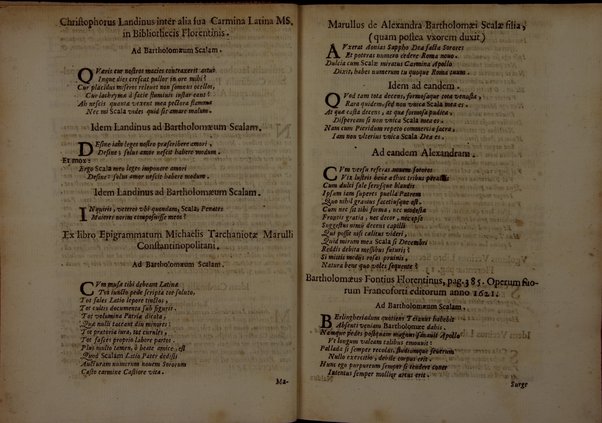 Christophorus Landinus inter alia sua Carmina Latina MS.
in Bibliothecis Florentinis.
Ad Bartholomæum Scalam.
QVæris cur nostros macies contraxerit artus
Inque dies crescat pallor in ore mihi?
Cur placidus miseros relevet non somnus ocellos,
Cur lacryma è facili fluminis instar eunt?
Ah nescis quanta vexent mea pectora flamma
Nec mi Scala vides quid sit amare malum.
Idem Landinus ad Bartholomæum Scalam.
DEsine iam longe nostro præscribere amori,
Desine: solus amor nescit habere modum.
Et mox:
Ergo Scala meo leges imponere amori
Desine: solus amor nescit habere modum.
Idem Landinus ad Bartholomæum Scalam.
INquiris, vereor vbi quandam, Scala, Penates
Mutvere norim composuisse meos?
Ex libro Epigrammatum Michaelis Tarchaniotæ Marulli
Constantinopolitani.
Ad Bartholomæum Scalam.
CVm musæ tibi debeant Latinæ
Tot iuncto pede scripta tot soluto.
Tot sales Latio lepore tinctos,
Tot cultis documenta sub figuris.
Tot volumina Patriæ dicata,
Quæ nulli taceant diu minores:
Tot prætoria iura, tot curules:
Tot fasces proprio labore partos.
Plus iuncto tamen, ô beate amice, est
Quod Scalam Litia Pater dedisti
Aucturam numerum nouem Sororum
Casto carmine Castiore vita.
Ma-
Marullus de Alexandra Bartholomæi Scalæ filia,
(quam postea vxorem duxit)
AVxerat Aonias Sappho Dea facta Sorores
Et poteras numero cedere Roma nouo.
Dulcia cum Scalæ miratus Carmina Apollo
Dixit, habes numerum tu quoque Roma tuum.
Idem ad eandem.
QVod tam tota decens, formosaque tota venusta,
Rara quidem, sed non vnica Scala mea es.
At quæ casta decens, at quæ formosa pudica,
Dispeream si non vnica Scala mea es.
Nam cum Pieridum repeto commercia sacra,
Iam non vlterius vnica Scala Dea es.
Ad eandem Alexandram.
CVm versu referas nouem sorores
Vix lustris bene de tribus puella
Cum dulci sale seriisque blandis
Ipsum iam superes puella Patrem
Quo nihil grauius facetiusque est.
Cum nec sit tibi forma, nec modestia
Frontis gratia, nec decor, nec ipso
Suggestus nimis decens capilli
Qui possit iusi calitus videri,
Quid mirum mea Scala si Decembri
Reddis debita messibus futuris?
Si mitis medijs rosas pruinis,
Natura bene quo voles sequente?
Bartholomæus Fontius Florentinus, pag. 385. Operum suo-
rum Francoforti editorum anno 1621.
Ad Bartholomæum Scalam.
BErlingheriadum quotiens
Absenti veniam Bartholomæe dabis.
Namque pedes postquam magium seruauit Apollo
Vt longum valeam talibus emouit:
Pallada si semper recolas, studiosque seuerum
Nullo exercitio, debile corpus erit.
Hunc ego purpureum semper si tendere coner
Intentus semper mollior arcus erit.
Surge